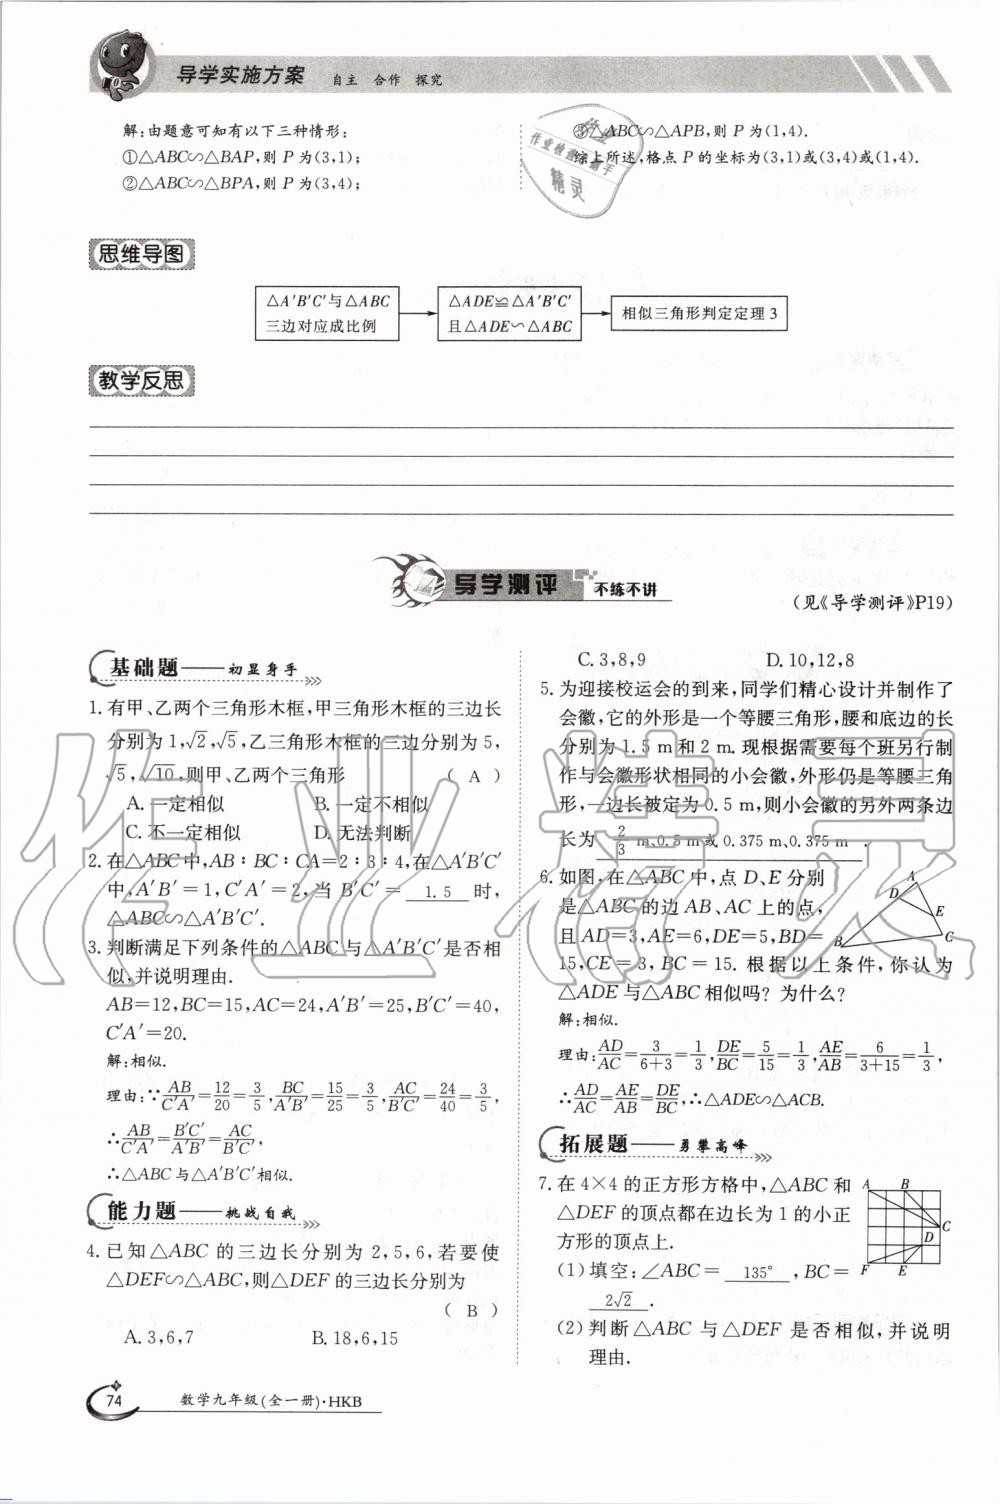 导学实施方案 自主 合作 探究
解:由题意可知有以下三种情形:
①△ABC∽△BAP,则 P 为(3,1);
②△ABC∽△BPA,则 P 为(3,4);
③△ABC∽△APB,则 P 为(1,4).
综上所述,格点 P 的坐标为(3,1)或(3,4)或(1,4).
思维导图
△A′B′C′与△ABC
三边对应成比例
△ADE≌△A′B′C′
且△ADE∽△ABC
相似三角形判定定理 3
教学反思
导学测评 不练不讲
(见《导学测评》P19)
基础题——初显身手
1. 有甲、乙两个三角形木框,甲三角形木框的三边长
分别为 1,√2,√5,乙三角形木框的三边分别为 5,
√5,√10,则甲、乙两个三角形 ( A )
A. 一定相似 B. 一定不相似
C. 不一定相似 D. 无法判断
2. 在△ABC中,AB∶BC∶CA=2∶3∶4,在△A′B′C′
中,A′B′=1,C′A′=2,当 B′C′= 1.5 时,
△ABC∽△A′B′C′.
3. 判断满足下列条件的△ABC与△A′B′C′是否相
似,并说明理由.
AB=12,BC=15,AC=24,A′B′=25,B′C′=40,
C′A′=20.
解:相似.
理由:∵AB/C′A′=12/20=3/5,BC/A′B′=15/25=3/5,AC/B′C′=24/40=3/5,
∴AB/C′A′=B′C′/A′B′=AC/B′C′,
∴△ABC与△A′B′C′相似.
能力题——挑战自我
4. 已知△ABC 的三边长分别为 2,5,6,若要使
△DEF∽△ABC,则△DEF 的三边长分别为
( B )
A. 3,6,7 B. 18,6,15
C. 3,8,9 D. 10,12,8
5. 为迎接校运会的到来,同学们精心设计并制作了
会徽,它的外形是一个等腰三角形,腰和底边的长
分别为 1.5 m 和 2 m. 现根据需要每个班另行制
作与会徽形状相同的小会徽,外形仍是等腰三角
形,一边长被定为 0.5 m,则小会徽的另外两条边
长为 2/3 m、0.5 m 或 0.375 m、0.375 m .
6. 如图,在△ABC中,点 D、E 分别
是△ABC 的边 AB、AC 上的点,
且 AD=3,AE=6,DE=5,BD=
15,CE=3,BC=15. 根据以上条件,你认为
△ADE 与△ABC 相似吗? 为什么?
A
D
E
B
C
解:相似.
理由:AD/AC=3/6+3=1/3,DE/BC=5/15=1/3,AE/AB=6/3+15=1/3,
∴AD/AC=AE/AB=DE/BC,∴△ADE∽△ACB.
拓展题——勇攀高峰
7. 在 4×4 的正方形方格中,△ABC 和
△DEF 的顶点都在边长为 1 的小正
方形的顶点上.
(1)填空:∠ABC= 135° ,BC=
2√2 .
(2)判断△ABC 与△DEF 是否相似,并说明
理由.
A B
C
D
F E
74 数学九年级(全一册)·HKB
作业精灵
作业检查小助手
精灵